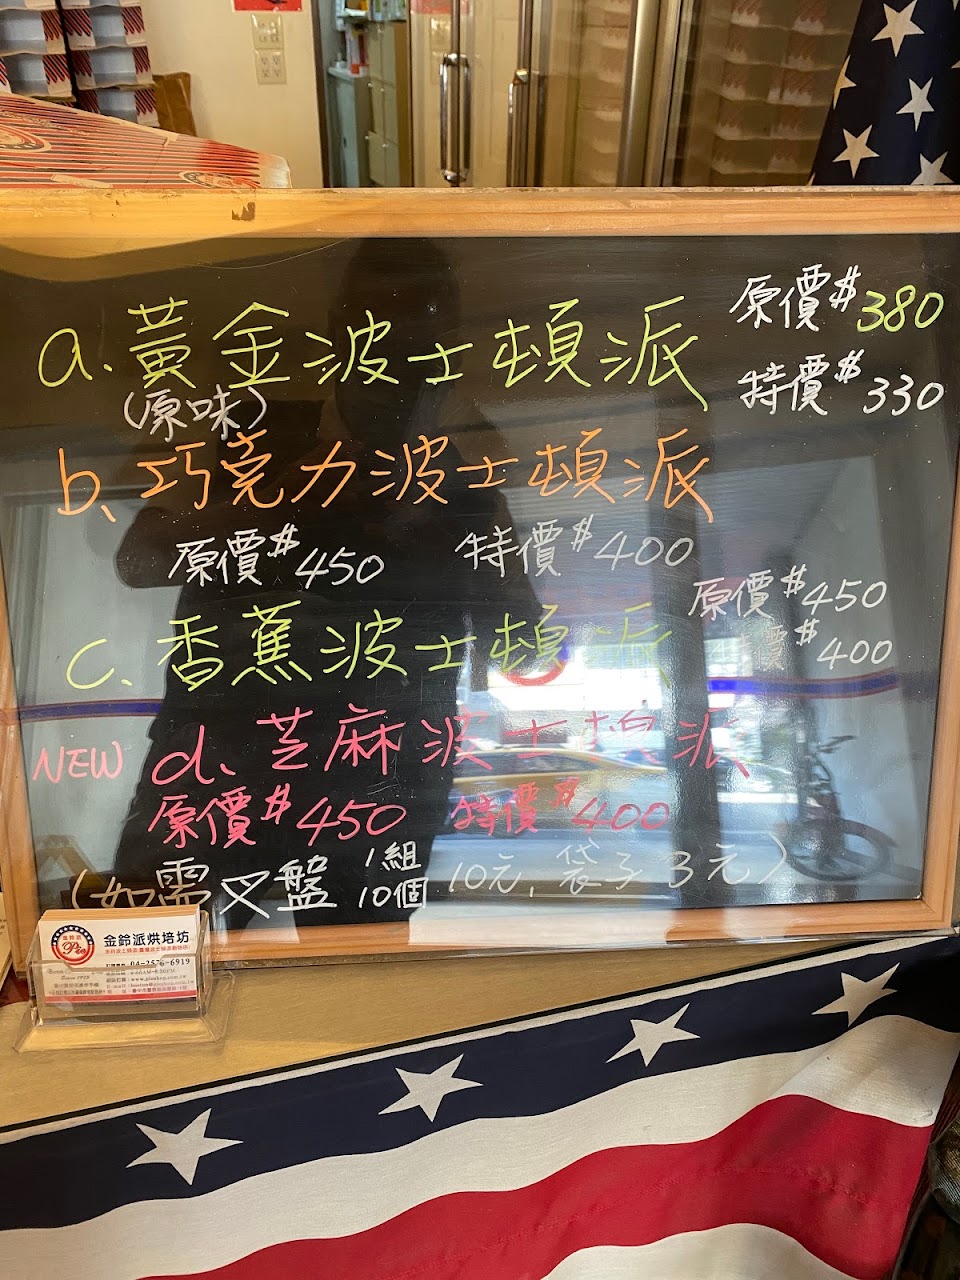 a.黃金波士頓派 原價$380
(原味) 特價$330
b.巧克力波士頓派
原價$450 特價$400
c.香蕉波士頓派 原價$450
特價$400
NEW d.芝麻波士頓派
原價$450 特價$400
(如需叉盤 1組10個 10元,袋子3元)
Pie 金鈴派烘培坊
04-2526-6919